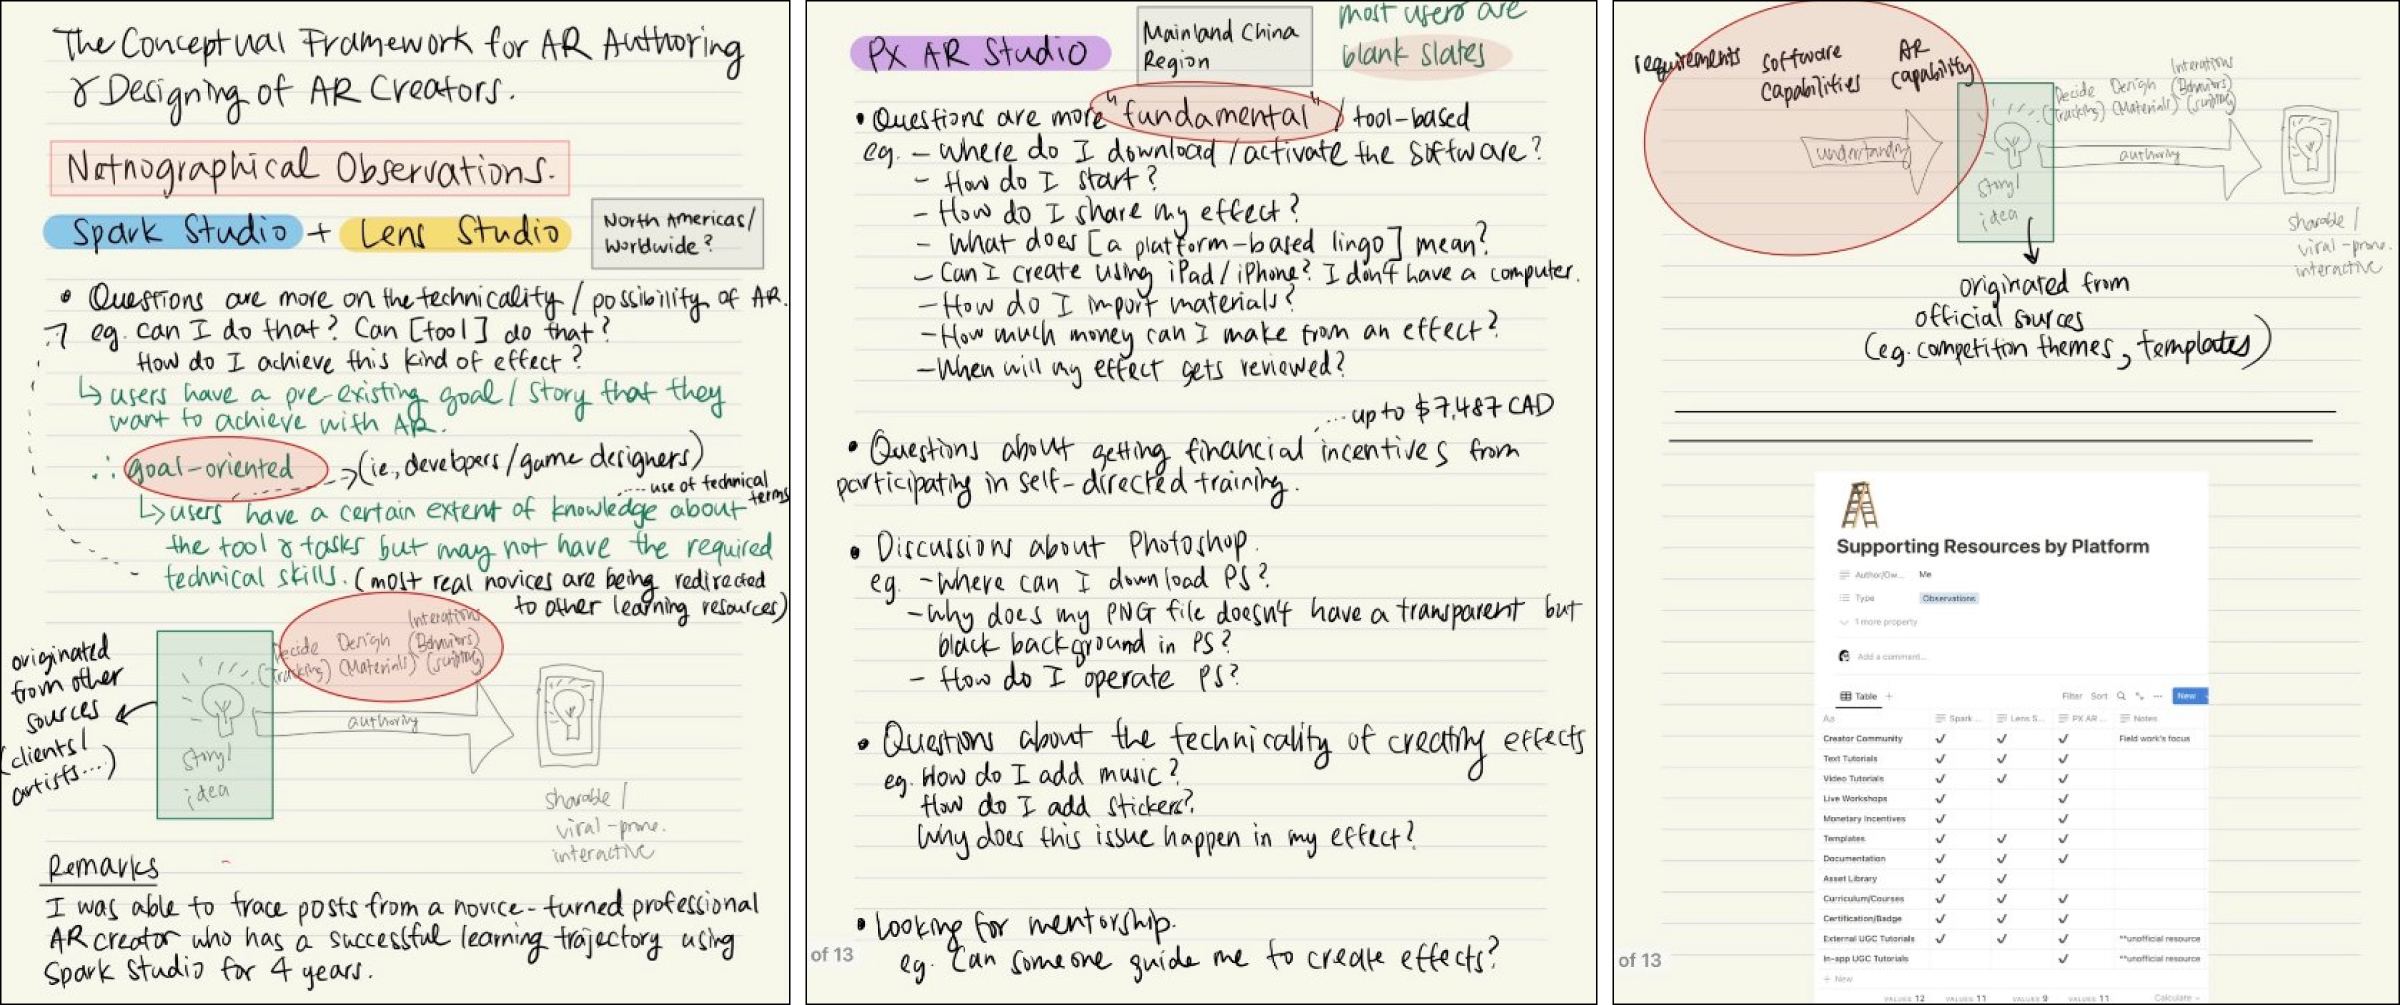 The Conceptual Framework for AR Authoring
& Designing of AR Creators.
Netnographical Observations.
Spark Studio + Lens Studio
North Americas/
Worldwide?
• Questions are more on the technicality / possibility of AR.
eg. can I do that? Can [tool] do that?
How do I achieve this kind of effect?
↳ users have a pre-existing goal / story that they
want to achieve with AR.
∴ goal-oriented → (ie., developers/game designers)
use of technical
terms
↳ users have a certain extent of knowledge about
the tool & tasks but may not have the required
technical skills. (most real novices are being redirected
to other learning resources)
originated
from other
sources
(clients/
artists...)
Interations
Decide Design (Behaviors)
(Tracking) (Materials) (scripting)
authoring
story/
idea
sharable /
viral-prone.
interactive
Remarks
I was able to trace posts from a novice-turned professional
AR creator who has a successful learning trajectory using
Spark Studio for 4 years.
PX AR Studio
Mainland China
Region
most users are
blank slates
• Questions are more "fundamental" / tool-based
eg. - Where do I download /activate the software?
- How do I start?
- How do I share my effect?
- What does [a platform-based lingo] mean?
- Can I create using iPad/iPhone? I don't have a computer.
- How do I import materials?
- How much money can I make from an effect?
- When will my effect gets reviewed?
... up to $7,487 CAD
• Questions about getting financial incentives from
participating in self-directed training.
• Discussions about Photoshop.
eg. - Where can I download PS?
- Why does my PNG file doesn't have a transparent but
black background in PS?
- How do I operate PS?
• Questions about the technicality of creating effects
eg. How do I add music?
How do I add stickers?
Why does this issue happen in my effect?
• Looking for mentorship.
eg. Can someone guide me to create effects?
of 13
requirements
Software
Capabilities
AR
capability
understanding
Interations
Decide Design (Behaviors)
(Tracking) (Materials) (scripting)
authoring
story/
idea
sharable /
viral-prone.
interactive
originated from
official sources
(eg. competition themes, templates)
Supporting Resources by Platform
Author/Ow... Me
Type Observations
1 more property
Add a comment...
Table +
Filter Sort ... New
Aa Spark ... Lens S... PX AR ... Notes
Creator Community ✓ ✓ ✓ Field work's focus
Text Tutorials ✓ ✓ ✓
Video Tutorials ✓ ✓ ✓
Live Workshops ✓ ✓
Monetary Incentives ✓ ✓
Templates ✓ ✓ ✓
Documentation ✓ ✓ ✓
Asset Library ✓ ✓
Curriculum/Courses ✓ ✓ ✓
Certification/Badge ✓ ✓ ✓
External UGC Tutorials ✓ ✓ ✓ **unofficial resource
In-app UGC Tutorials ✓ **unofficial resource
+ New
VALUES 12 VALUES 11 VALUES 9 VALUES 11 Calculate
of 13